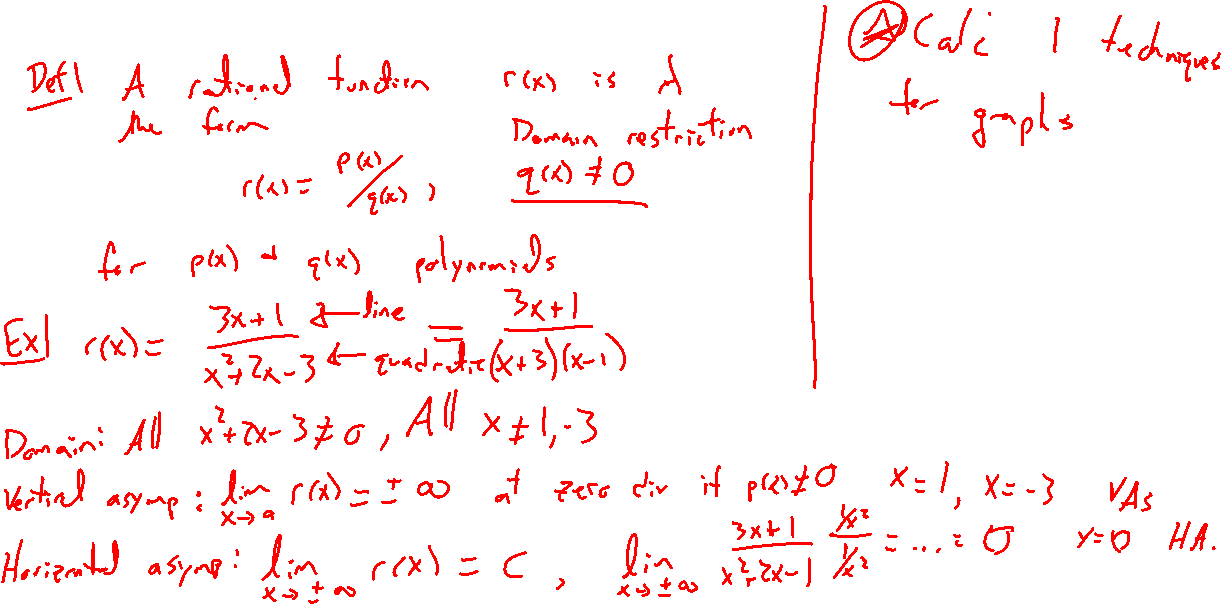 Def 1 A rational function r(x) is of
the form
Domain restriction
r(x) = p(x)/q(x), q(x) ≠ 0
for p(x) + q(x) polynomials
Ex 1 r(x) = (3x+1)/(x²+2x-3) ← line ← quadratic = (3x+1)/((x+3)(x-1))
Domain: All x²+2x-3 ≠ 0, All x ≠ 1, -3
Vertical asymp: lim x→a r(x) = ± ∞ at zero div if p(x) ≠ 0 x=1, x=-3 VAs
Horizontal asymp: lim x→±∞ r(x) = c, lim x→±∞ (3x+1)/(x²+2x-1) (1/x²)/(1/x²) = ... = 0 y=0 HA.
Calc 1 techniques
for graphs